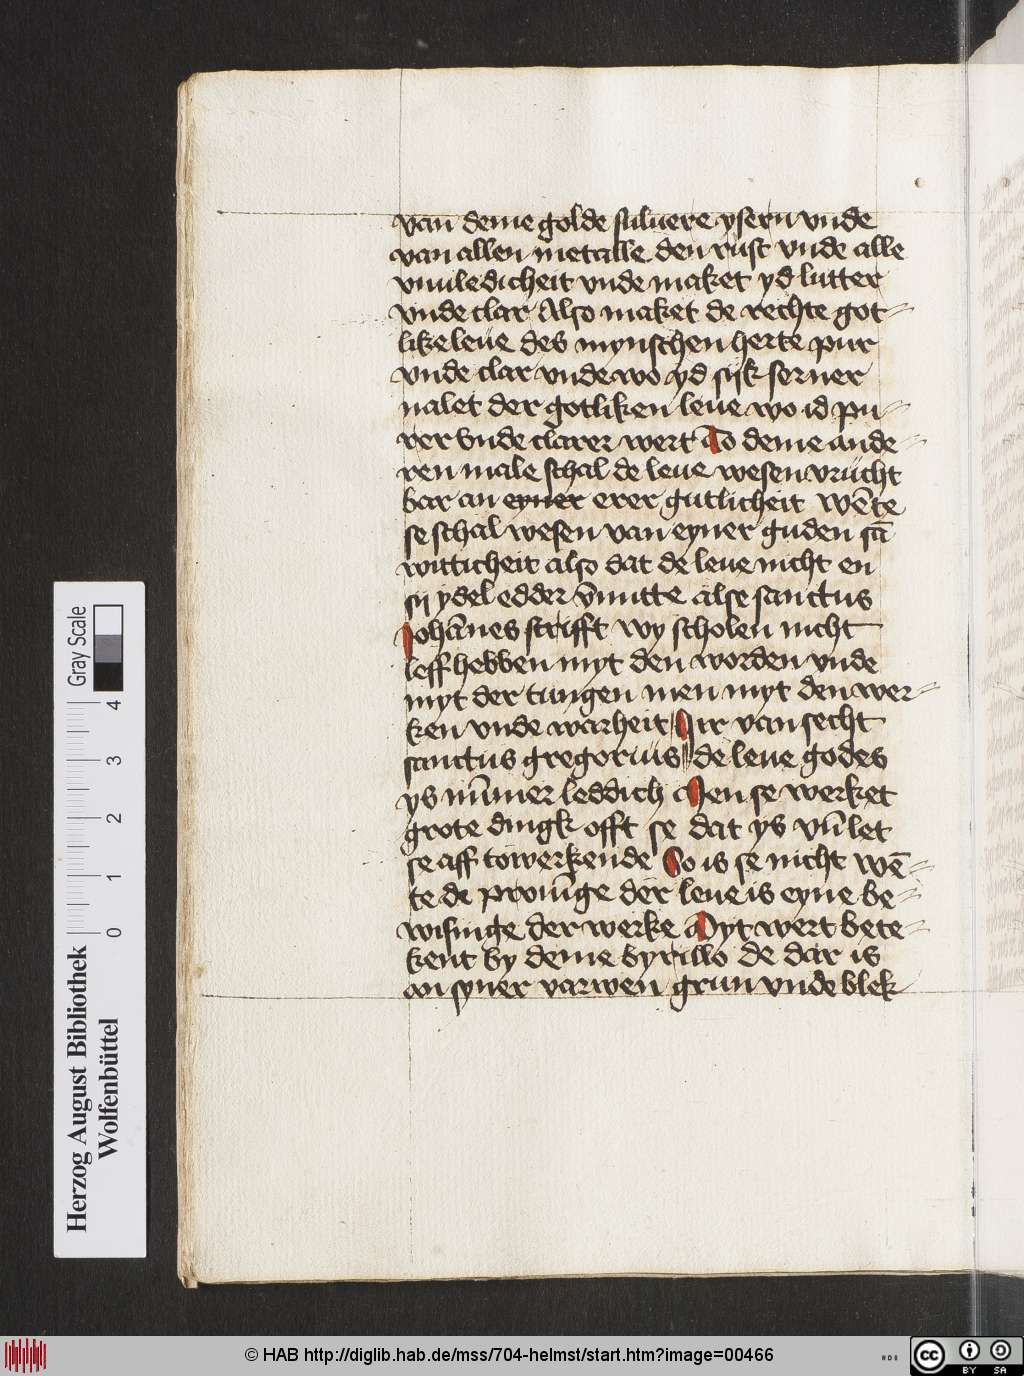 van deme golde suluere ysern vnde
van allen metalle den rust vnde alle
vnuledicheit vnde maket yd lutter
vnde clar Also maket de rechte got-
like leue des mynschen herte pur
vnde clar vnde wo yd sijk ferner
nalet der gotliken leue wo id pu-
rer vnde clarer wert To deme ande-
ren male schal de leue wesen vrucht
bar an eyner erer gutlicheit wēte
se schal wesen van eyner guden sā
witticheit also dat de leue nicht en
sij ydel edder v̄nutte alse sanctus
Johānes scrifft wy scholen nicht
leff hebben myt den worden vnde
myt der tungen men myt den wer-
ken vnde warheit Hir van secht
sanctus gregorius de leue godes
ys nūmer leddich Men se werket
grote dingk offt se dar ys vn̄ let
se aff towerkende So is se nicht wē-
te de prouīge der leue is eyne be-
wisinge der werke Dyt wert bete-
kent by deme byrillo de dar is
an syner varwen grun vnde blek
Herzog August Bibliothek
Wolfenbüttel
0 1 2 3 4
Gray Scale
© HAB http://diglib.hab.de/mss/704-helmst/start.htm?image=00466
HAB
cc BY SA